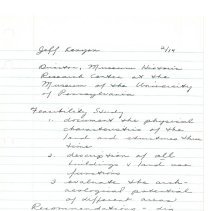 Jeff Kenyon 2/14
Director, Museum Historic
Research Center at the
Museum of the University
of Pennsylvania
Feasibility Study
1. document the physical
characteristics of the
land and structures thru
time
2. description of all
buildings & land use
functions
3. evaluate the arch-
eological potential
of different areas
Recommendations - dis